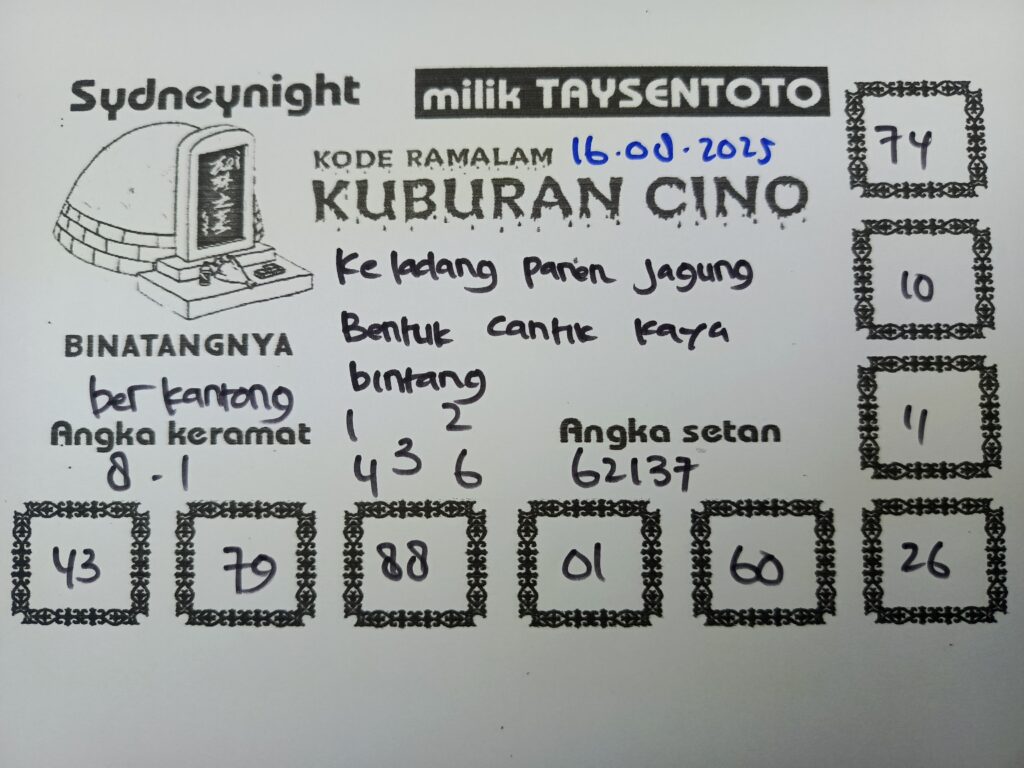 Sydneynight
milik TAYSENTOTO
KODE RAMALAM 16.08.2025
KUBURAN CINO
Ke ladang panen Jagung
Bentuk cantik kaya
bintang
BINATANGNYA
berkantong
Angka keramat
8.1
1 2
4 3 6
Angka setan
62137
74
10
11
43 79 88 01 60 26